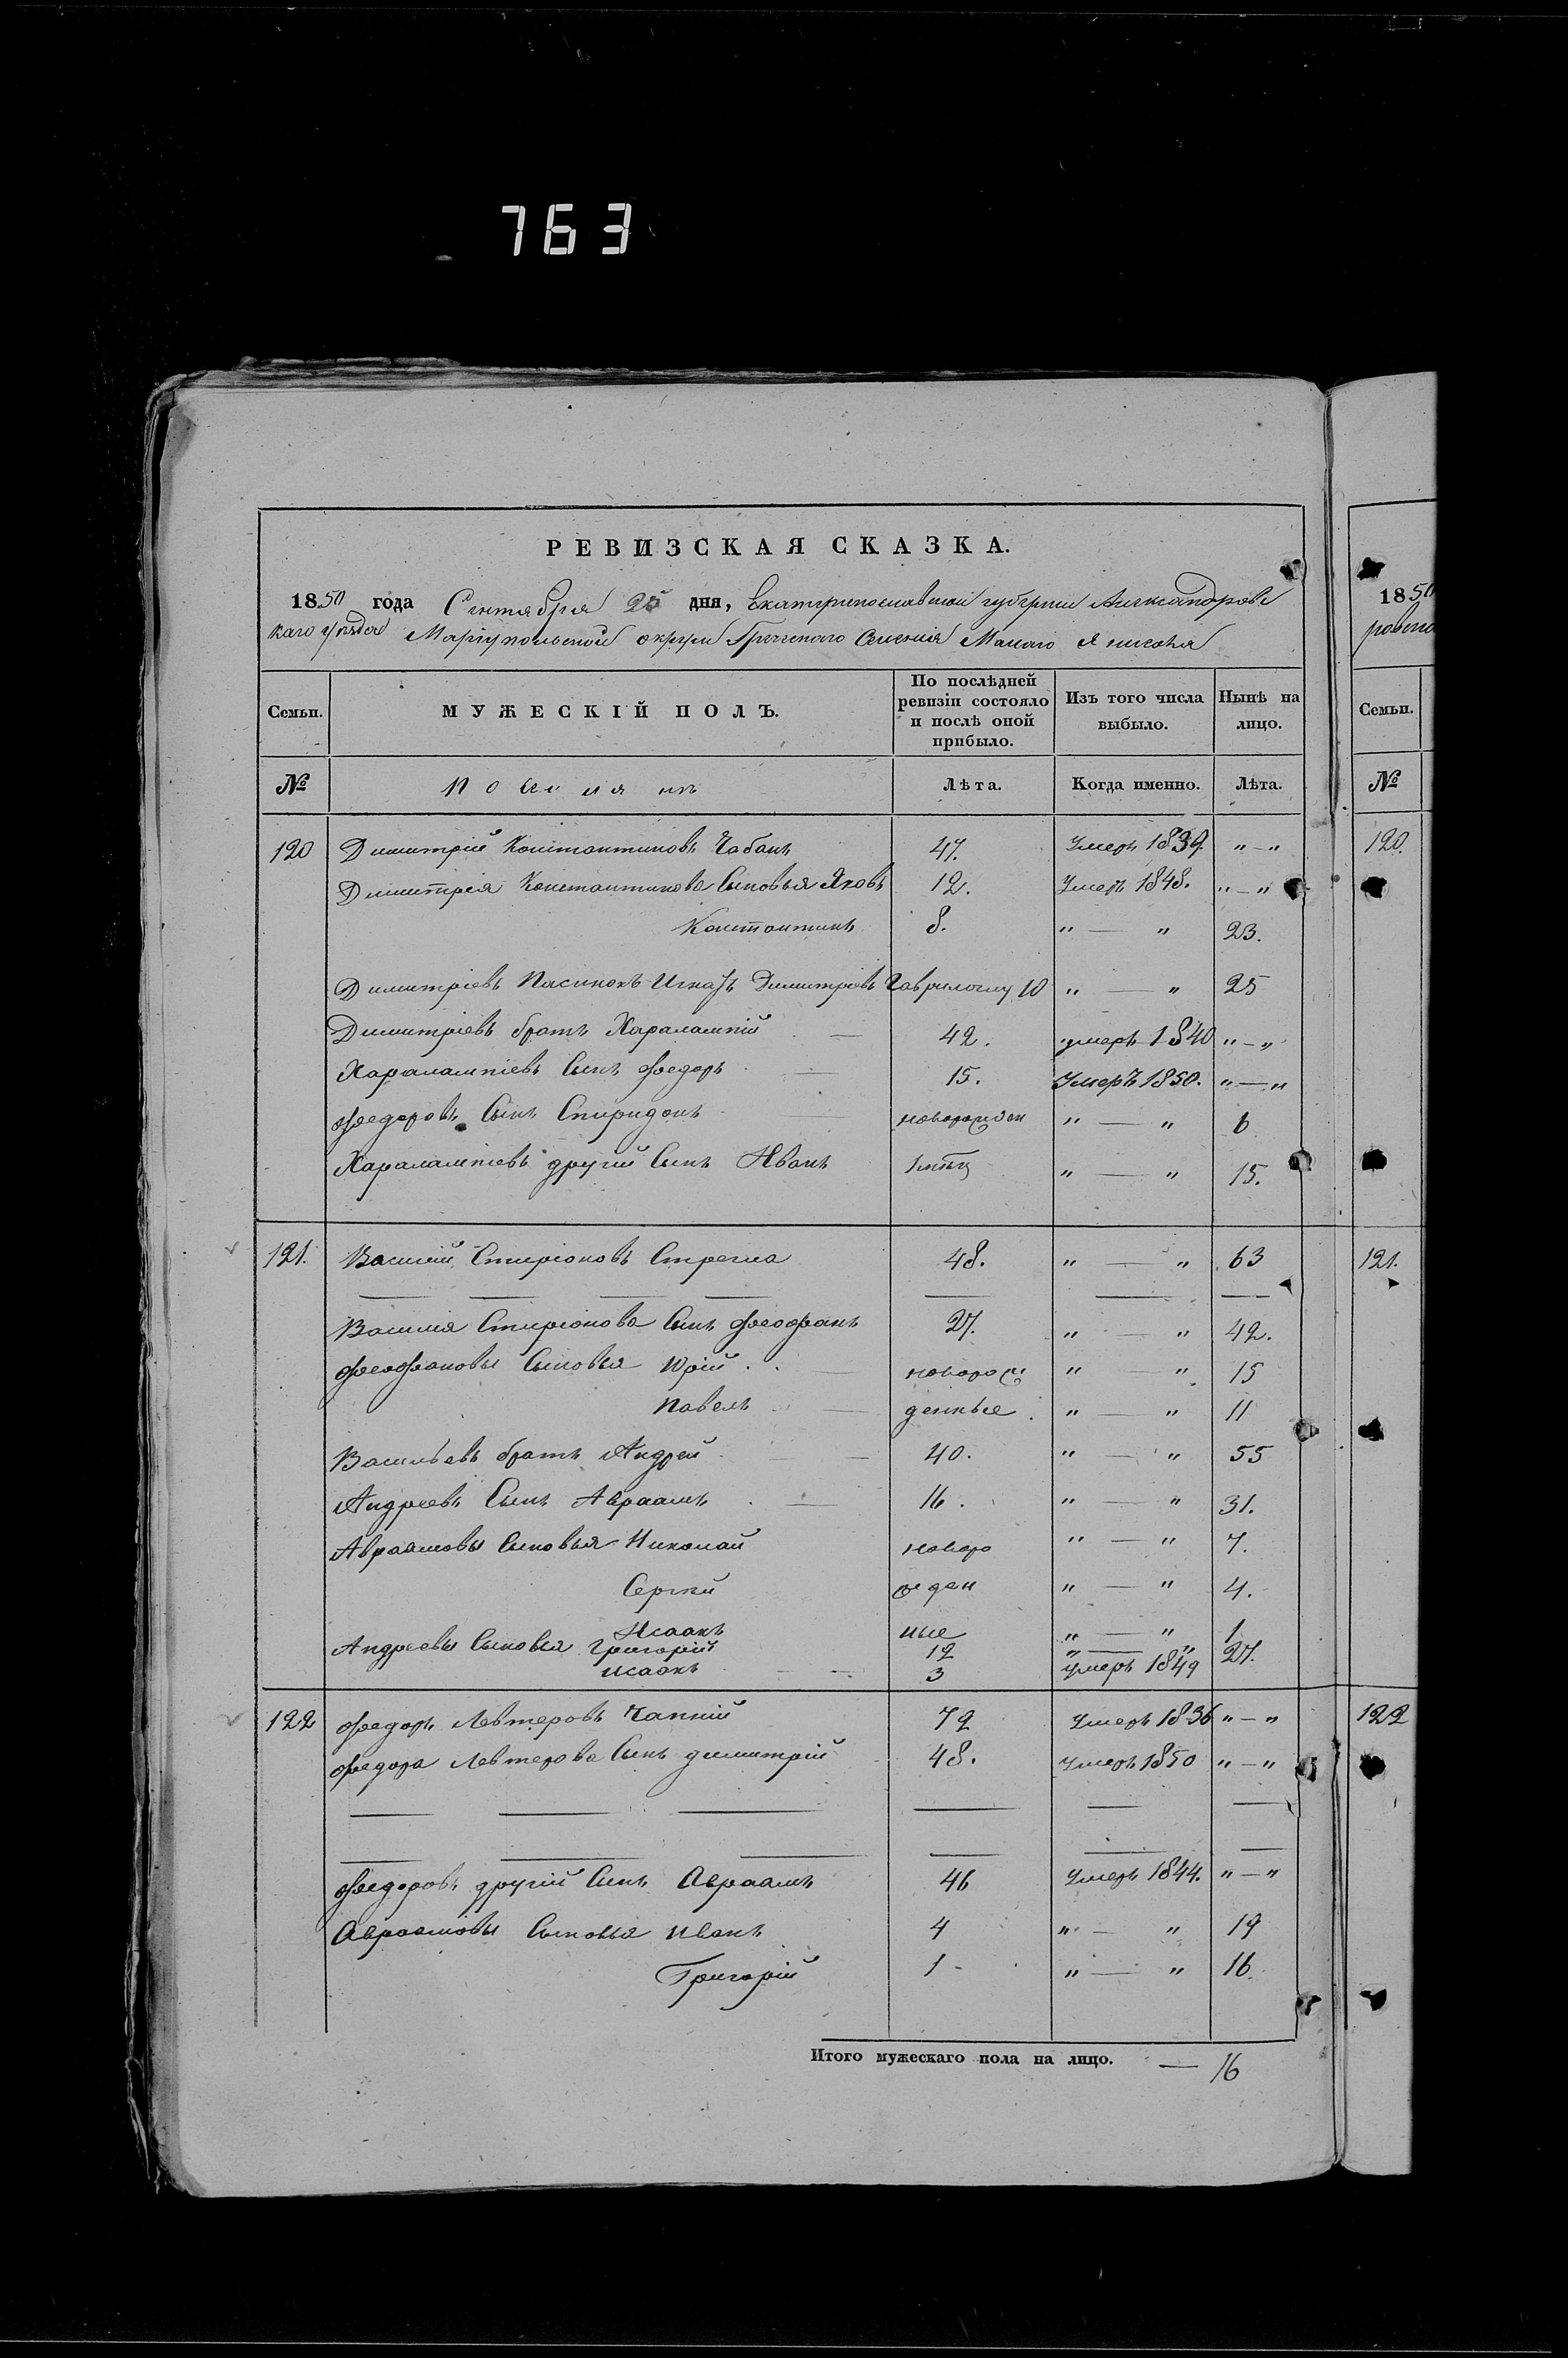 763
РЕВИЗСКАЯ СКАЗКА.
1850 года Сентября 25 дня, Екатеринославской губернии Александровс
каго уѣзда Маріупольской округи Греческаго Селенія Малаго Янисоля
Семьи. МУЖЕСКІЙ ПОЛЪ. По послѣдней ревизіи состояло и послѣ оной прибыло. Изъ того числа выбыло. Нынѣ на лицо.
№ Поселянъ Лѣта. Когда именно. Лѣта.
120 Димитрій Константиновъ Чабанъ 47. Умеръ 1839. " — "
Димитрія Константинова Сыновья Яковъ 12. Умеръ 1848. " — "
Константинъ 8. " — " 23.
Димитріевъ Пасинокъ Игнатъ Димитріевъ 10 " — " 25
Димитріевъ братъ Харалампій — 42. умеръ 1840 " — "
Харалампіевъ Сынъ Феодоръ — 15. Умеръ 1850. " — "
Феодоровъ Сынъ Спиридонъ новорожден " — " 6
Харалампіевъ другій Сынъ Иванъ " — " 15.
121. Василій Спиріоновъ Стрегла 48. " — " 63
Василія Спиріонова Сынъ Феофанъ 27. " — " 42.
Феофановы Сыновья Юрій — новорож " — " 15
Павелъ — денные " — " 11
Васильевъ братъ Андрей — 40. " — " 55
Андреевъ Сынъ Авраамъ — 16. " — " 31.
Авраамовы Сыновья Николай новоро " — " 7.
Сергей жден " — " 4.
Исаакъ ные " — " 1.
Андреевы Сыновья Григорій 12 " — " 27.
Исаакъ — 3 умеръ 1849
122 Феодоръ Левтеровъ Чапній 72 Умеръ 1836 " — "
Феодора Левтерова Сынъ Димитрій 48. Умеръ 1850 " — "
Феодоровъ другій Сынъ Авраамъ 46 Умеръ 1844. " — "
Авраамовы Сыновья Иванъ 4 " — " 19
Григорій 1 — " — " 16.
Итого мужескаго пола на лицо. — 16
1850
Семьи.
№
120.
121.
122